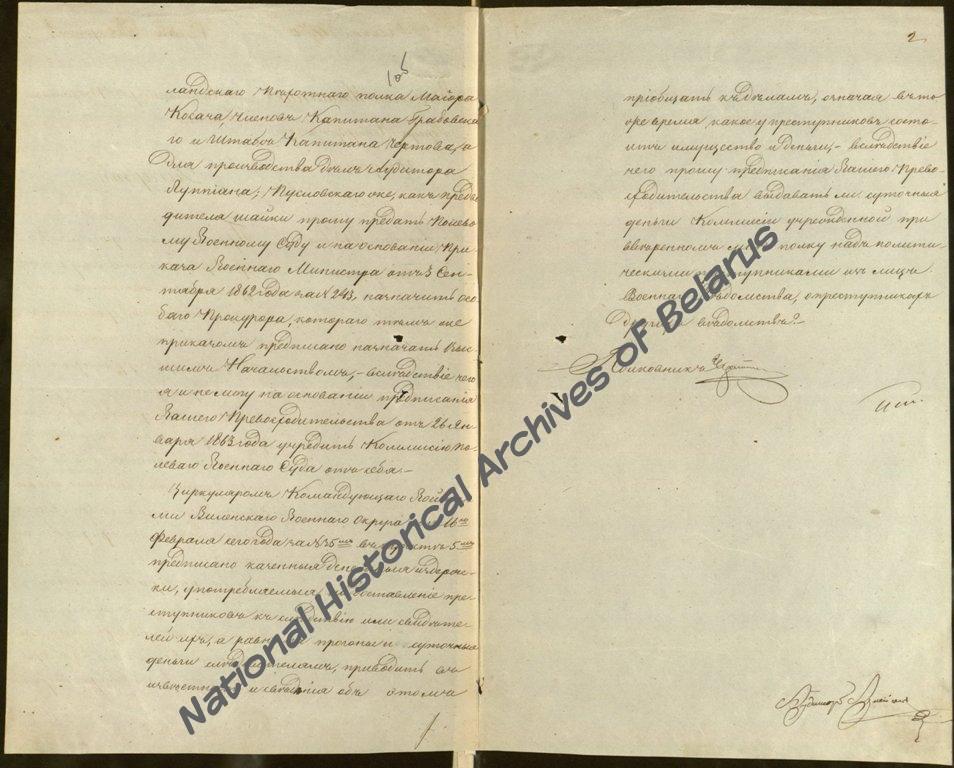 1об
ландскаго Пехотнаго полка Маіора
Косача Членовъ Капитана Грабовска
го и Штабсъ Капитана Чертова, а
для производства делъ Аудитора
Яуппіана; Пусловскаго же, какъ предво
дителя шайки прошу предать Полево
му Военному Суду и на основаніи При
каза Военнаго Министра отъ 3 Сен
тября 1862 года за № 243, назначить осо
баго Прокурора, котораго темъ же
приказомъ предписано назначать Выс
шимъ Начальствомъ, – вследствіе чего
я и не могу на основаніи предписанія
Вашего Превосходительства отъ 26 Ян
варя 1863 года учредить Коммисію по
леваго Военнаго Суда отъ себя. –
Циркуляромъ Командующаго Войска
ми Виленскаго Военнаго Округа 16го
Февраля сего года за № 35 въ пункте 5мъ
предписано казенныя денежныя издерж
ки, употребляемыя доставленіе пре
ступниковъ къ следствію или свидете
лей ихъ, а равно прогоны и суточныя
деньги следователямъ, приводить въ
известность и сведенія объ этомъ
2
пріобщать къ деламъ, означая въ то
же время, какое у преступниковъ состо
итъ имущество и деньги, – вследствіе
чего прошу предписанія Вашего Прево
сходительства выдавать ли суточныя
деньги Коммисіи учрежденной при
ввѣренномъ мне полку надъ полити
ческими преступниками изъ лицъ
Военнаго ведомства, о преступникахъ
другаго ведомства? –
Полковникъ
Аудиторъ
National Historical Archives of Belarus